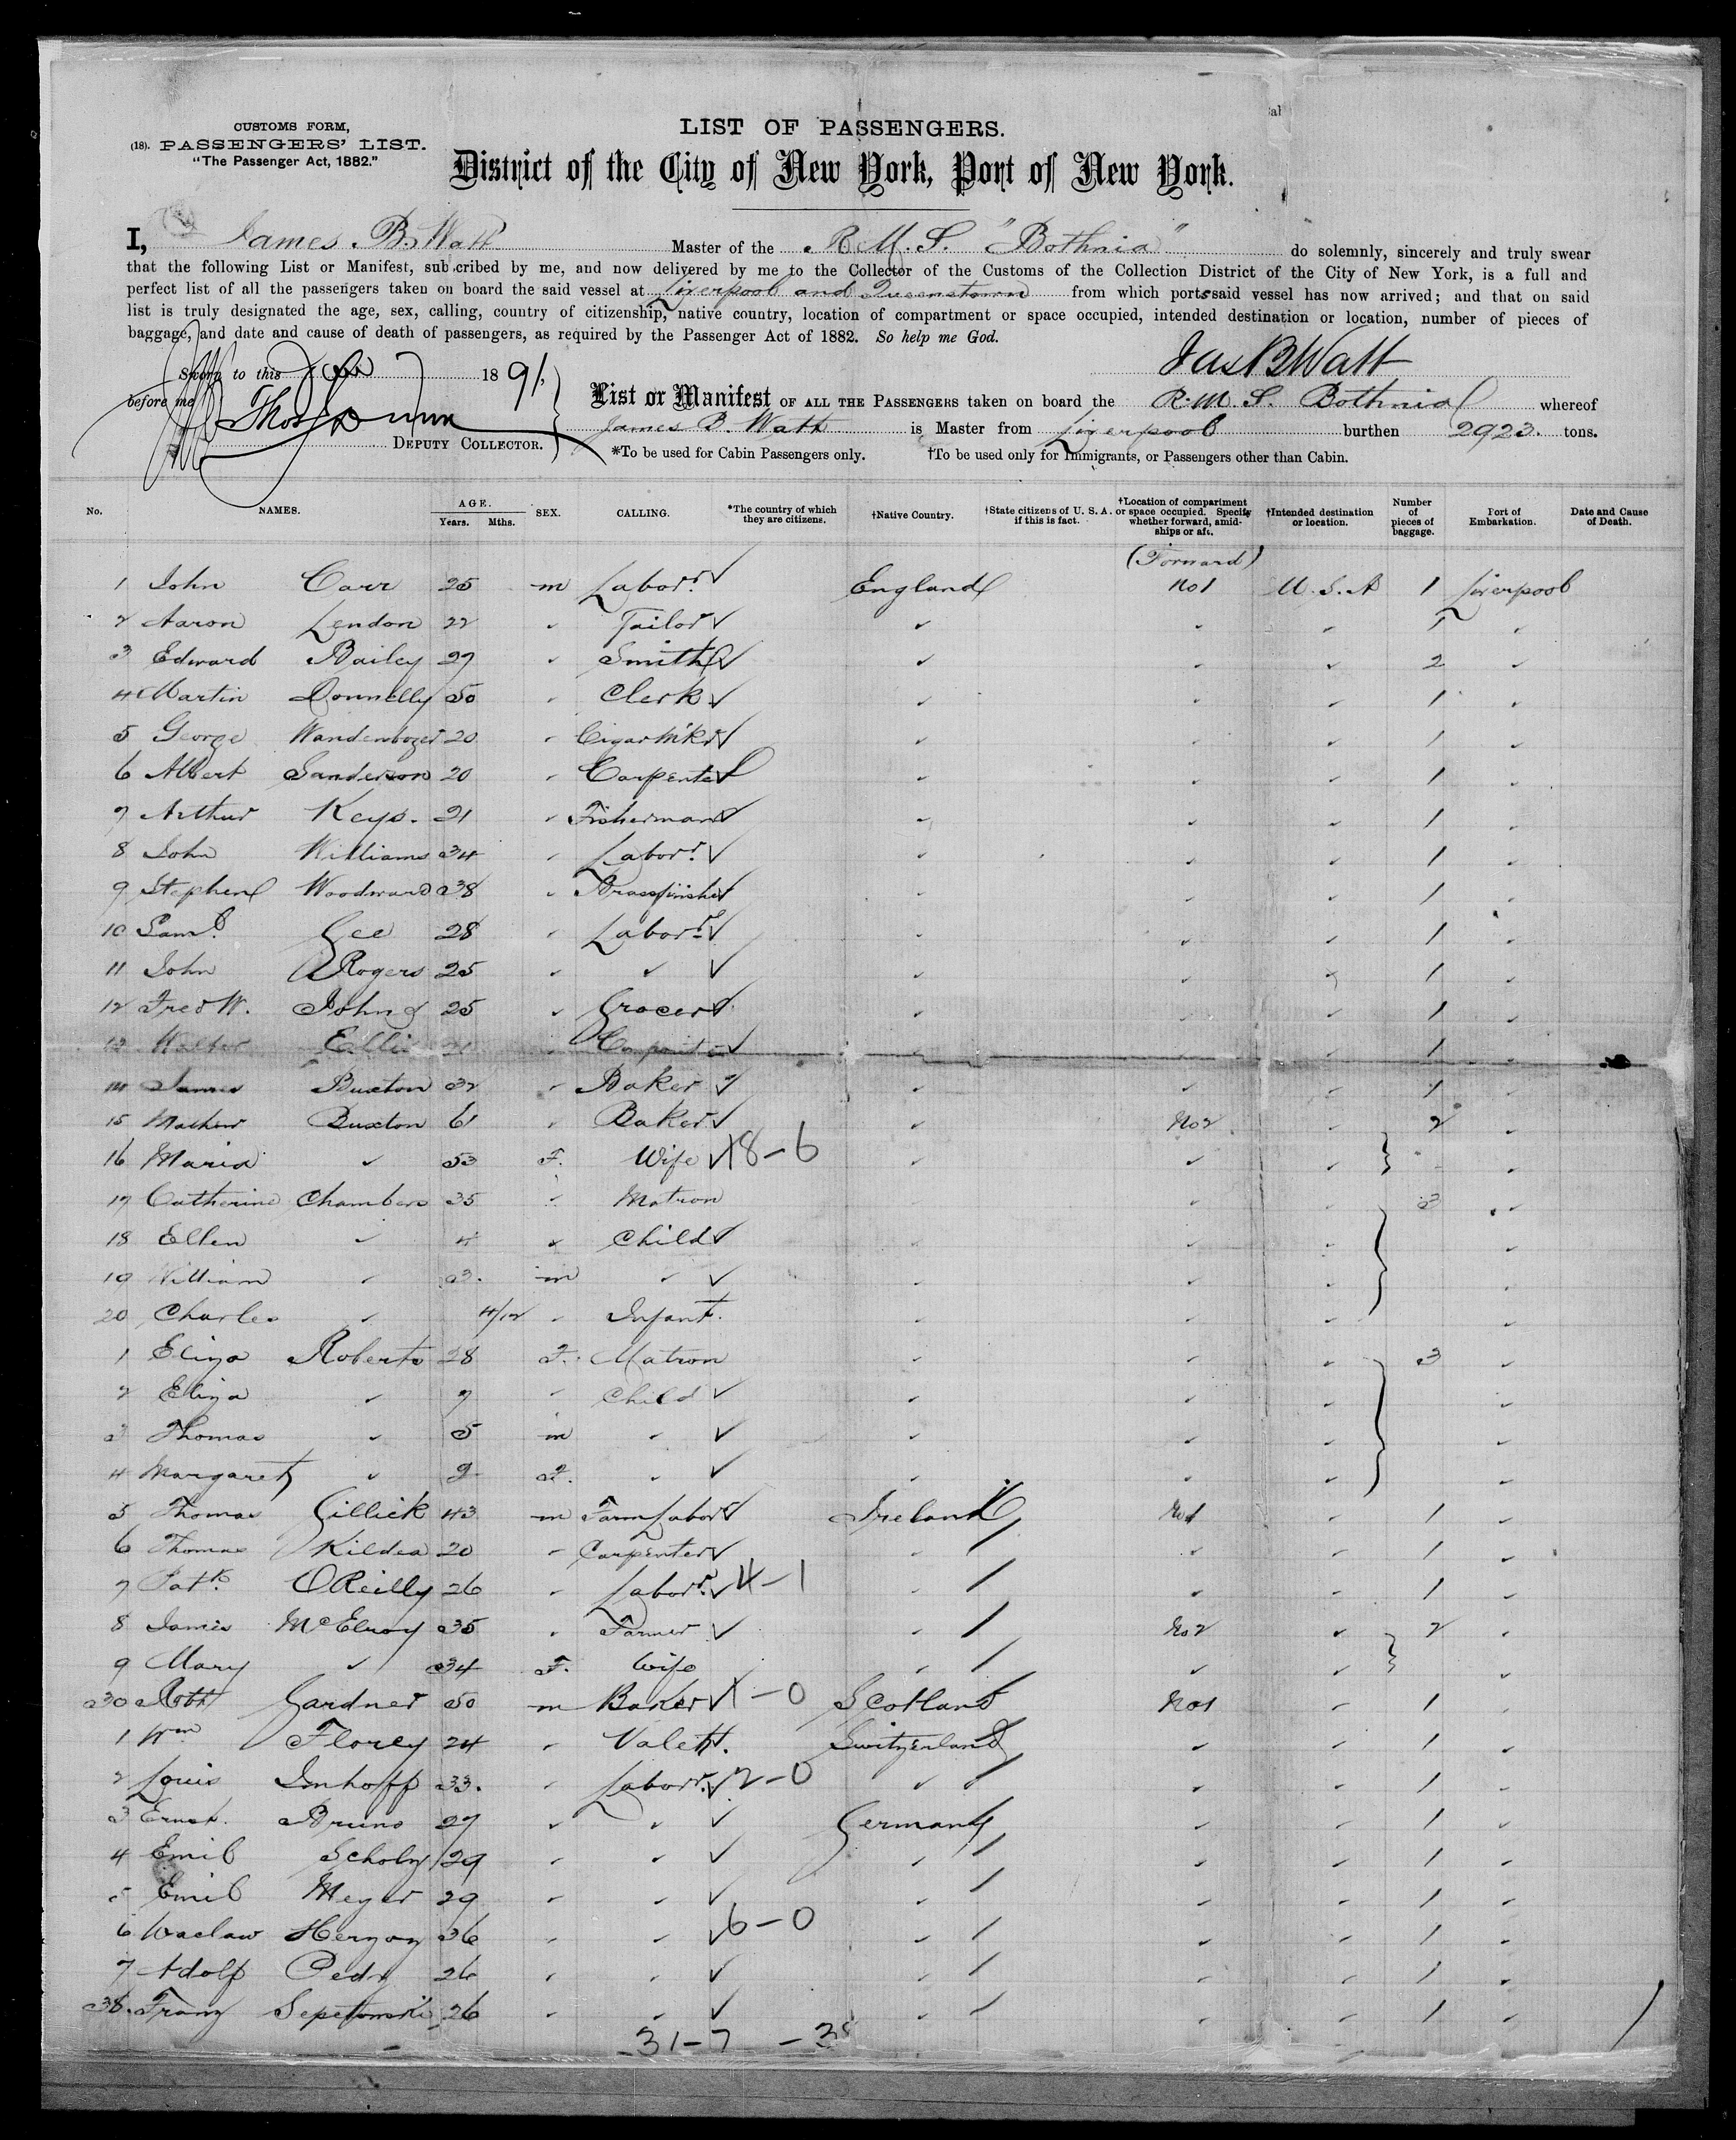 CUSTOMS FORM,
(18). PASSENGERS' LIST.
"The Passenger Act, 1882."
LIST OF PASSENGERS.
District of the City of New York, Port of New York.
I, James B. Watt Master of the R.M.S. "Bothnia" do solemnly, sincerely and truly swear
that the following List or Manifest, subscribed by me, and now delivered by me to the Collector of the Customs of the Collection District of the City of New York, is a full and
perfect list of all the passengers taken on board the said vessel at Liverpool and Queenstown from which ports said vessel has now arrived; and that on said
list is truly designated the age, sex, calling, country of citizenship, native country, location of compartment or space occupied, intended destination or location, number of pieces of
baggage, and date and cause of death of passengers, as required by the Passenger Act of 1882. So help me God.
Jas B Watt
Sworn to this 18 91,
before me Thos Dunn
DEPUTY COLLECTOR.
List or Manifest OF ALL THE PASSENGERS taken on board the R.M.S. Bothnia whereof
James B. Watt is Master from Liverpool burthen 2923. tons.
*To be used for Cabin Passengers only. †To be used only for Immigrants, or Passengers other than Cabin.
No. NAMES. AGE. Years. Mths. SEX. CALLING. *The country of which they are citizens. †Native Country. †State citizens of U. S. A. if this is fact. †Location of compartment or space occupied. Specify whether forward, amidships or aft. †Intended destination or location. Number of pieces of baggage. Port of Embarkation. Date and Cause of Death.
(Forward)
1 John Carr 25 m Labor.r England No 1 U.S.A 1 Liverpool
2 Aaron Lendon 22 " Tailor " " " 1 "
3 Edward Bailey 27 " Smith " " " 2 "
4 Martin Donnelly 50 " Clerk " " " 1 "
5 George 20 " Cigar Mkr " " " 1 "
6 Albert Sanderson 20 " Carpenter " " " 1 "
7 Arthur Keys. 21 " Fisherman " " " 1 "
8 John Williams 34 " Labor.r " " " 1 "
9 Stephen Woodward 38 " Brassfinisher " " " 1 "
10 Saml. Gee 28 " Labor.r " " " 1 "
11 John Rogers 25 " " " " " 1 "
12 Fred W. John 25 " Grocer " " " 1 "
13 Walter Ellis " " " 1 "
14 James Buxton 32 " Baker " " " 1 "
15 Mathew Buxton 61 " Baker " No 2 " 2 "
16 Maria " 53 F. Wife 18-6 " " " "
17 Catherine Chambers 35 " Matron " " " 3 "
18 Ellen " 4 " Child " " " "
19 William " 3. m " " " " "
20 Charles " 4/12 " Infant. " " " "
1 Eliza Roberts 28 F. Matron " " " 3 "
2 Eliza " 7 " Child " " " "
3 Thomas " 5 m " " " " "
4 Margaret " 2 F. " " " " "
5 Thomas Gillick 43 m Farm Labor Ireland No 1 " 1 "
6 Thomas Kildea 20 " Carpenter " " " 1 "
7 Patk. O'Reilly 26 " Labor.r 4-1 " " " 1 "
8 James McElroy 35 " Farmer " No 2 " 2 "
9 Mary " 34 F. Wife " " " "
30 Robt Gardner 50 m Baker 1-0 Scotland No 1 " 1 "
1 Wm Florey 24 " Valet. Switzerland " " 1 "
2 Louis Imhoff 33. " Labor.r 2-0 " " " 1 "
3 Ernst. Bruno 27 " " Germany " " 1 "
4 Emil Scholz 29 " " " " " 1 "
5 Emil Meyer 29 " " " " " 1 "
6 Waclaw Herzog 36 " " 6-0 " " " 1 "
7 Adolf 26 " " " " " 1 "
38. Franz 26 " " " " " 1 "
31-7 - 38